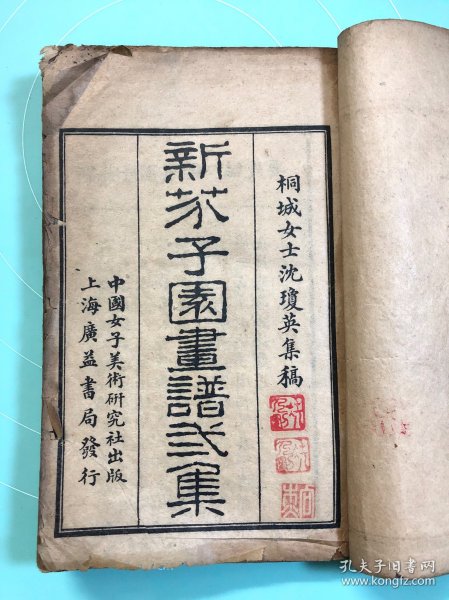 桐城女士沈瓊英集稿
新芥子園畫譜弍集
中國女子美術研究社出版
上海廣益書局發行
孔夫子旧书网
www.kongfz.com